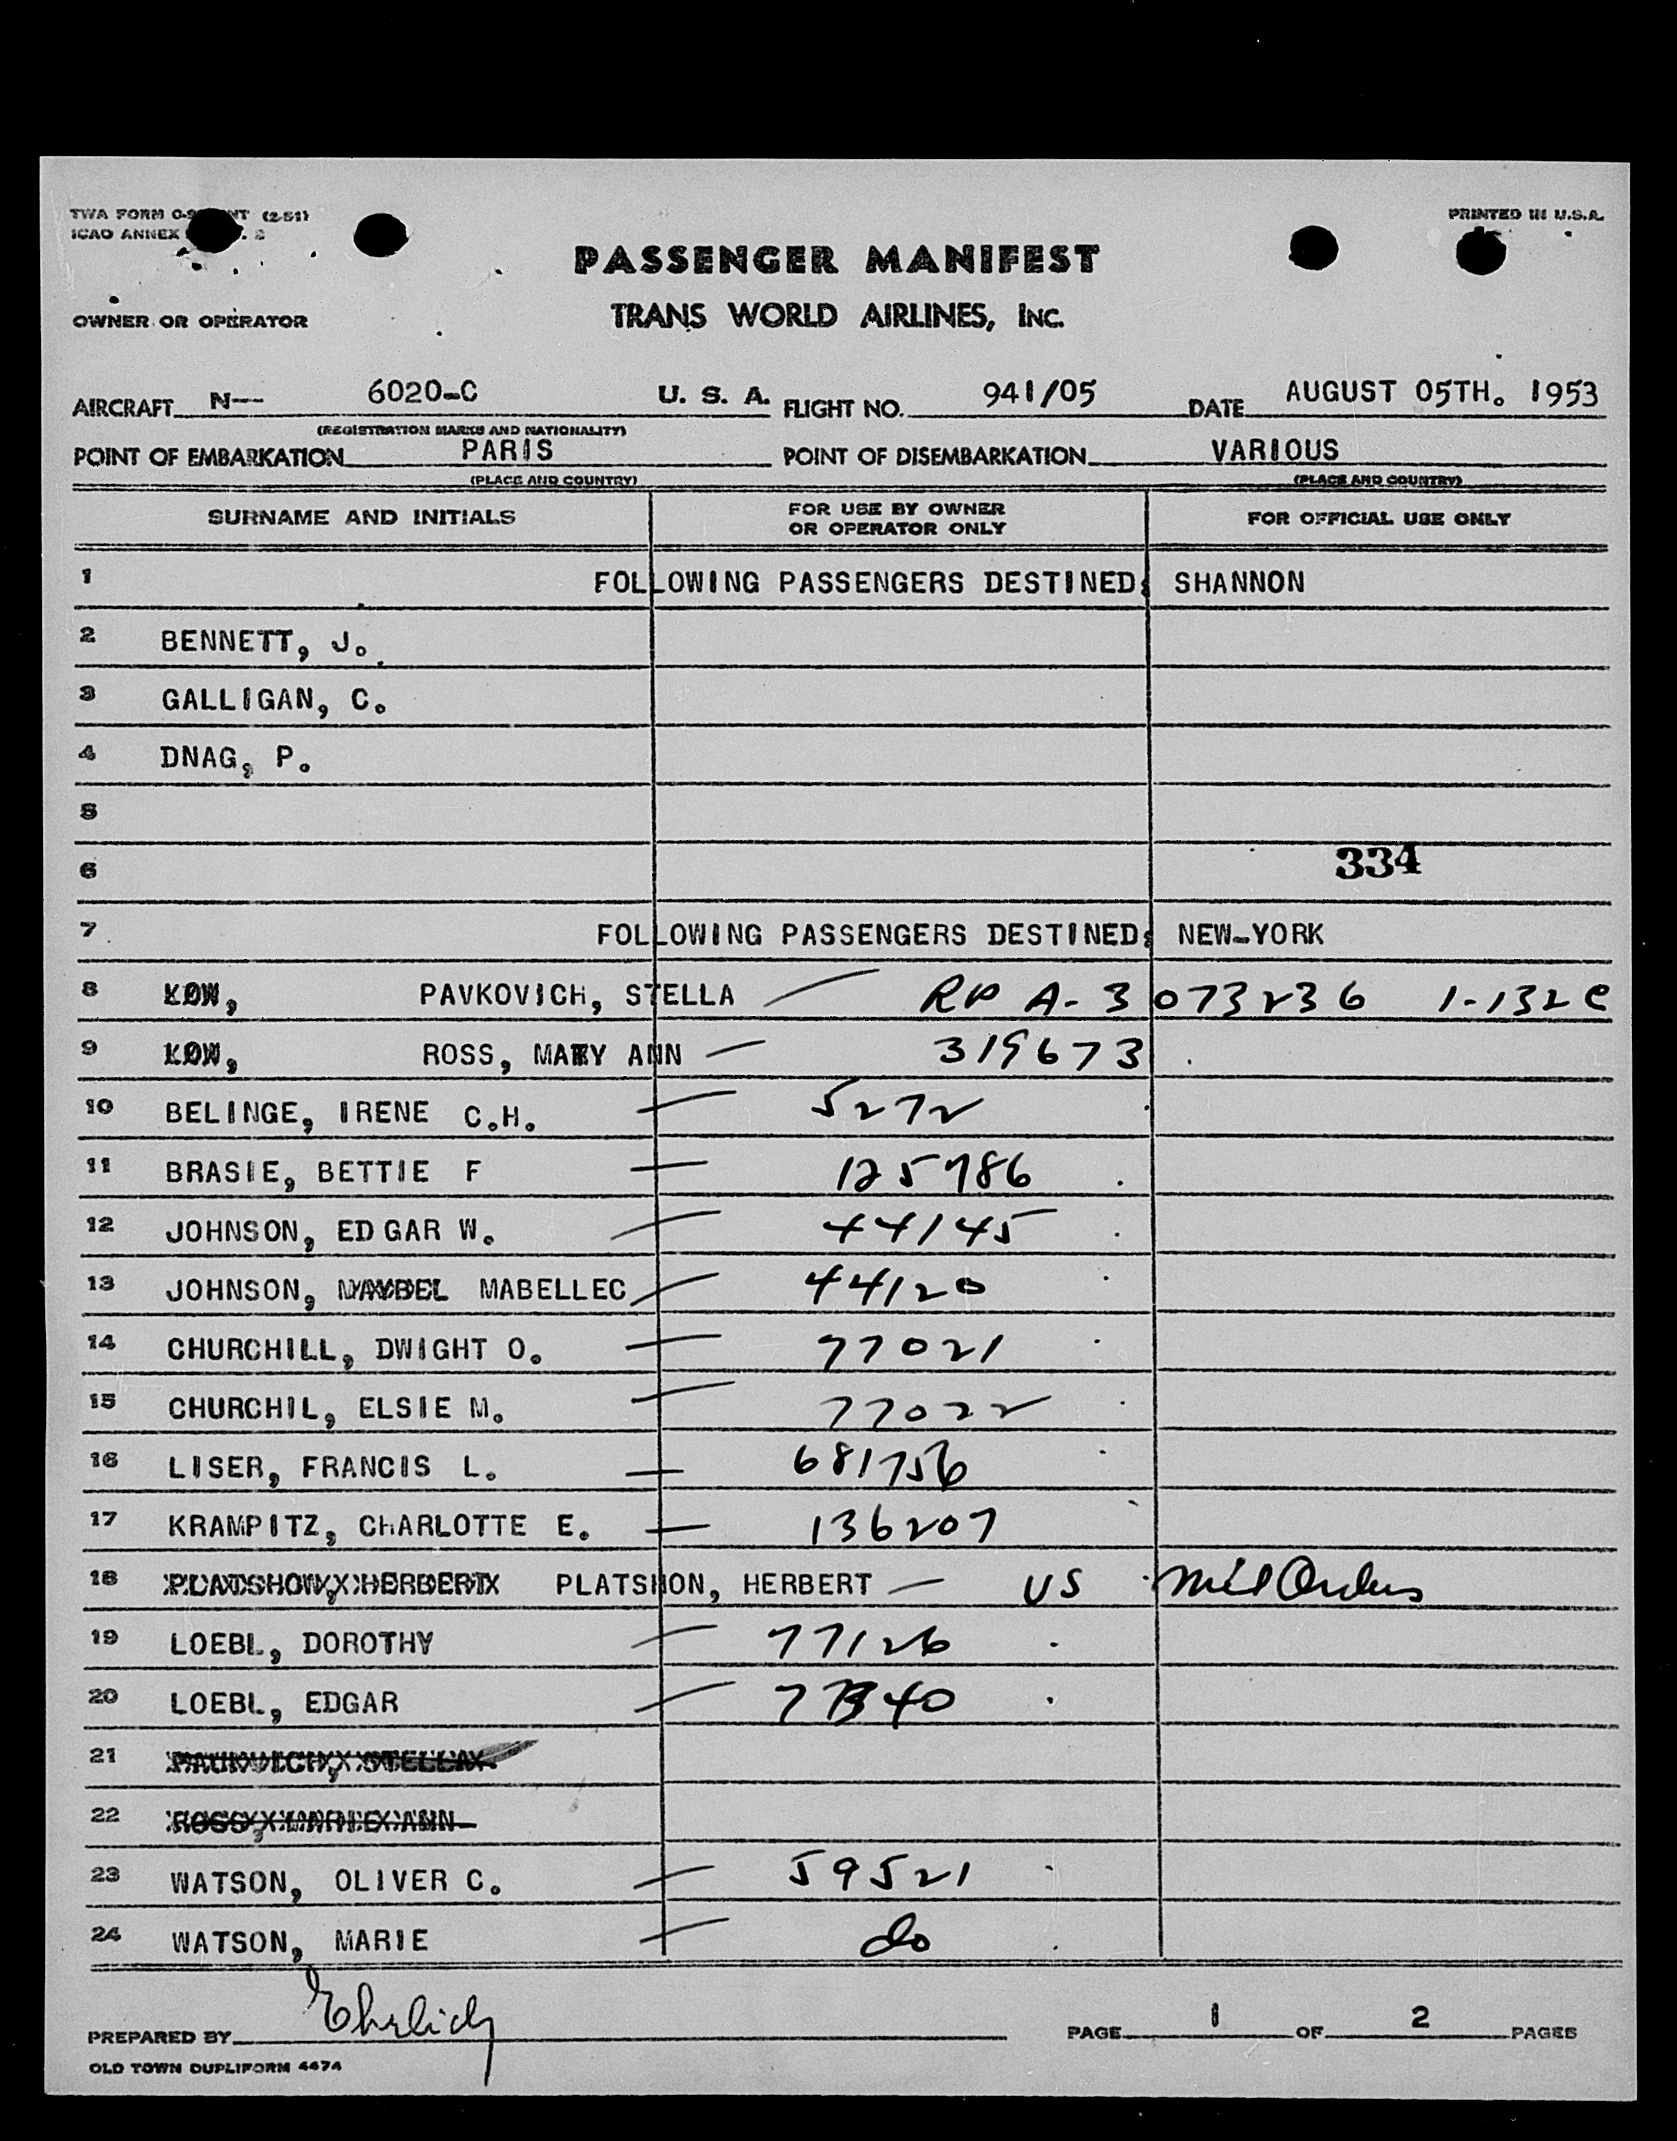 TWA FORM (2-51) PRINTED IN U.S.A.
ICAO ANNEX
PASSENGER MANIFEST
OWNER OR OPERATOR TRANS WORLD AIRLINES, INC.
AIRCRAFT N-- 6020-C U. S. A. FLIGHT NO. 941/05 DATE AUGUST 05TH. 1953
(REGISTRATION MARKS AND NATIONALITY)
POINT OF EMBARKATION PARIS POINT OF DISEMBARKATION VARIOUS
(PLACE AND COUNTRY) (PLACE AND COUNTRY)
SURNAME AND INITIALS FOR USE BY OWNER OR OPERATOR ONLY FOR OFFICIAL USE ONLY
1 FOLLOWING PASSENGERS DESTINED: SHANNON
2 BENNETT, J.
3 GALLIGAN, C.
4 DNAG, P.
5
6 334
7 FOLLOWING PASSENGERS DESTINED: NEW-YORK
8 PAVKOVICH, STELLA — RP A-3073236 1-132 C
9 ROSS, MARY ANN — 319673
10 BELINGE, IRENE C.H. — 5272
11 BRASIE, BETTIE F — 125786
12 JOHNSON, EDGAR W. — 44145
13 JOHNSON, MABELLEC — 44120
14 CHURCHILL, DWIGHT O. — 77021
15 CHURCHIL, ELSIE M. — 77022
16 LISER, FRANCIS L. — 681756
17 KRAMPITZ, CHARLOTTE E. — 136207
18 PLATSHON, HERBERT — US Mil Orders
19 LOEBL, DOROTHY — 77126
20 LOEBL, EDGAR —
21
22
23 WATSON, OLIVER C. — 59521
24 WATSON, MARIE — do
PREPARED BY Ehrlich PAGE 1 OF 2 PAGES
OLD TOWN DUPLIFORM 4474